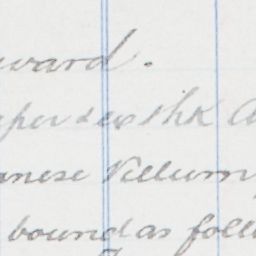 ward.
per & ex thk
anese Vellum
bound as foll